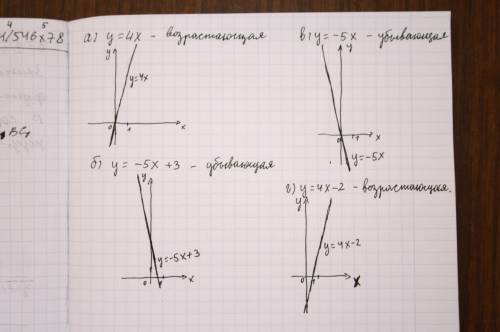 4 5
1/546x78
BC,
а) y=4x - возрастающая
y
y=4x
0 1 x
в) y=-5x - убывающая
y
0 1 x
y=-5x
б) y= -5x+3 - убывающая
y
y=-5x+3
0 1 x
г) y=4x-2 - возрастающая.
y
y=4x-2
0 1 x